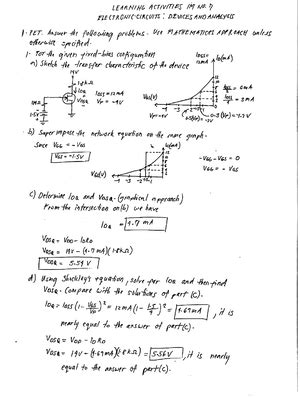 LEARNING ACTIVITIES IM NO. 4
ELECTRONIC CIRCUITS: DEVICES AND ANALYSIS
1. FET. Answer the following problems. Use MATHEMATICS APPROACH unless
otherwise specified.
1. For the given fixed-bias configuration
a) Sketch the transfer characteristic of the device
14V
1.8kΩ
IDQ
VDSQ
IDSS = 12mA
VP = -4V
1MΩ
1.5V
IDSS = 12mA
ID(mA)
VGS(V)
b) Superimpose the network equation on the same graph.
Since VGS = -VGG
VGS = -1.5V
ID(mA)
VGS(V)
-VGG - VGS = 0
VGS = -VGG
c) Determine IDQ and VDSQ. (graphical approach)
From the intersection on (b) we have
IDQ = 4.7 mA
VDSQ = VDD - IDRD
VDSQ = 14V - (4.7 mA)(1.8kΩ)
VDSQ = 5.54 V
d) Using Shockley's equation, solve for IDQ and then find
VDSQ. Compare with the solutions of part (c).
nearly equal to the answer of part (c).
VDSQ = VDD - IDRD
VDSQ = 14V - (4.69mA)(1.8kΩ) = 5.56V, it is nearly
equal to the answer of part (c).